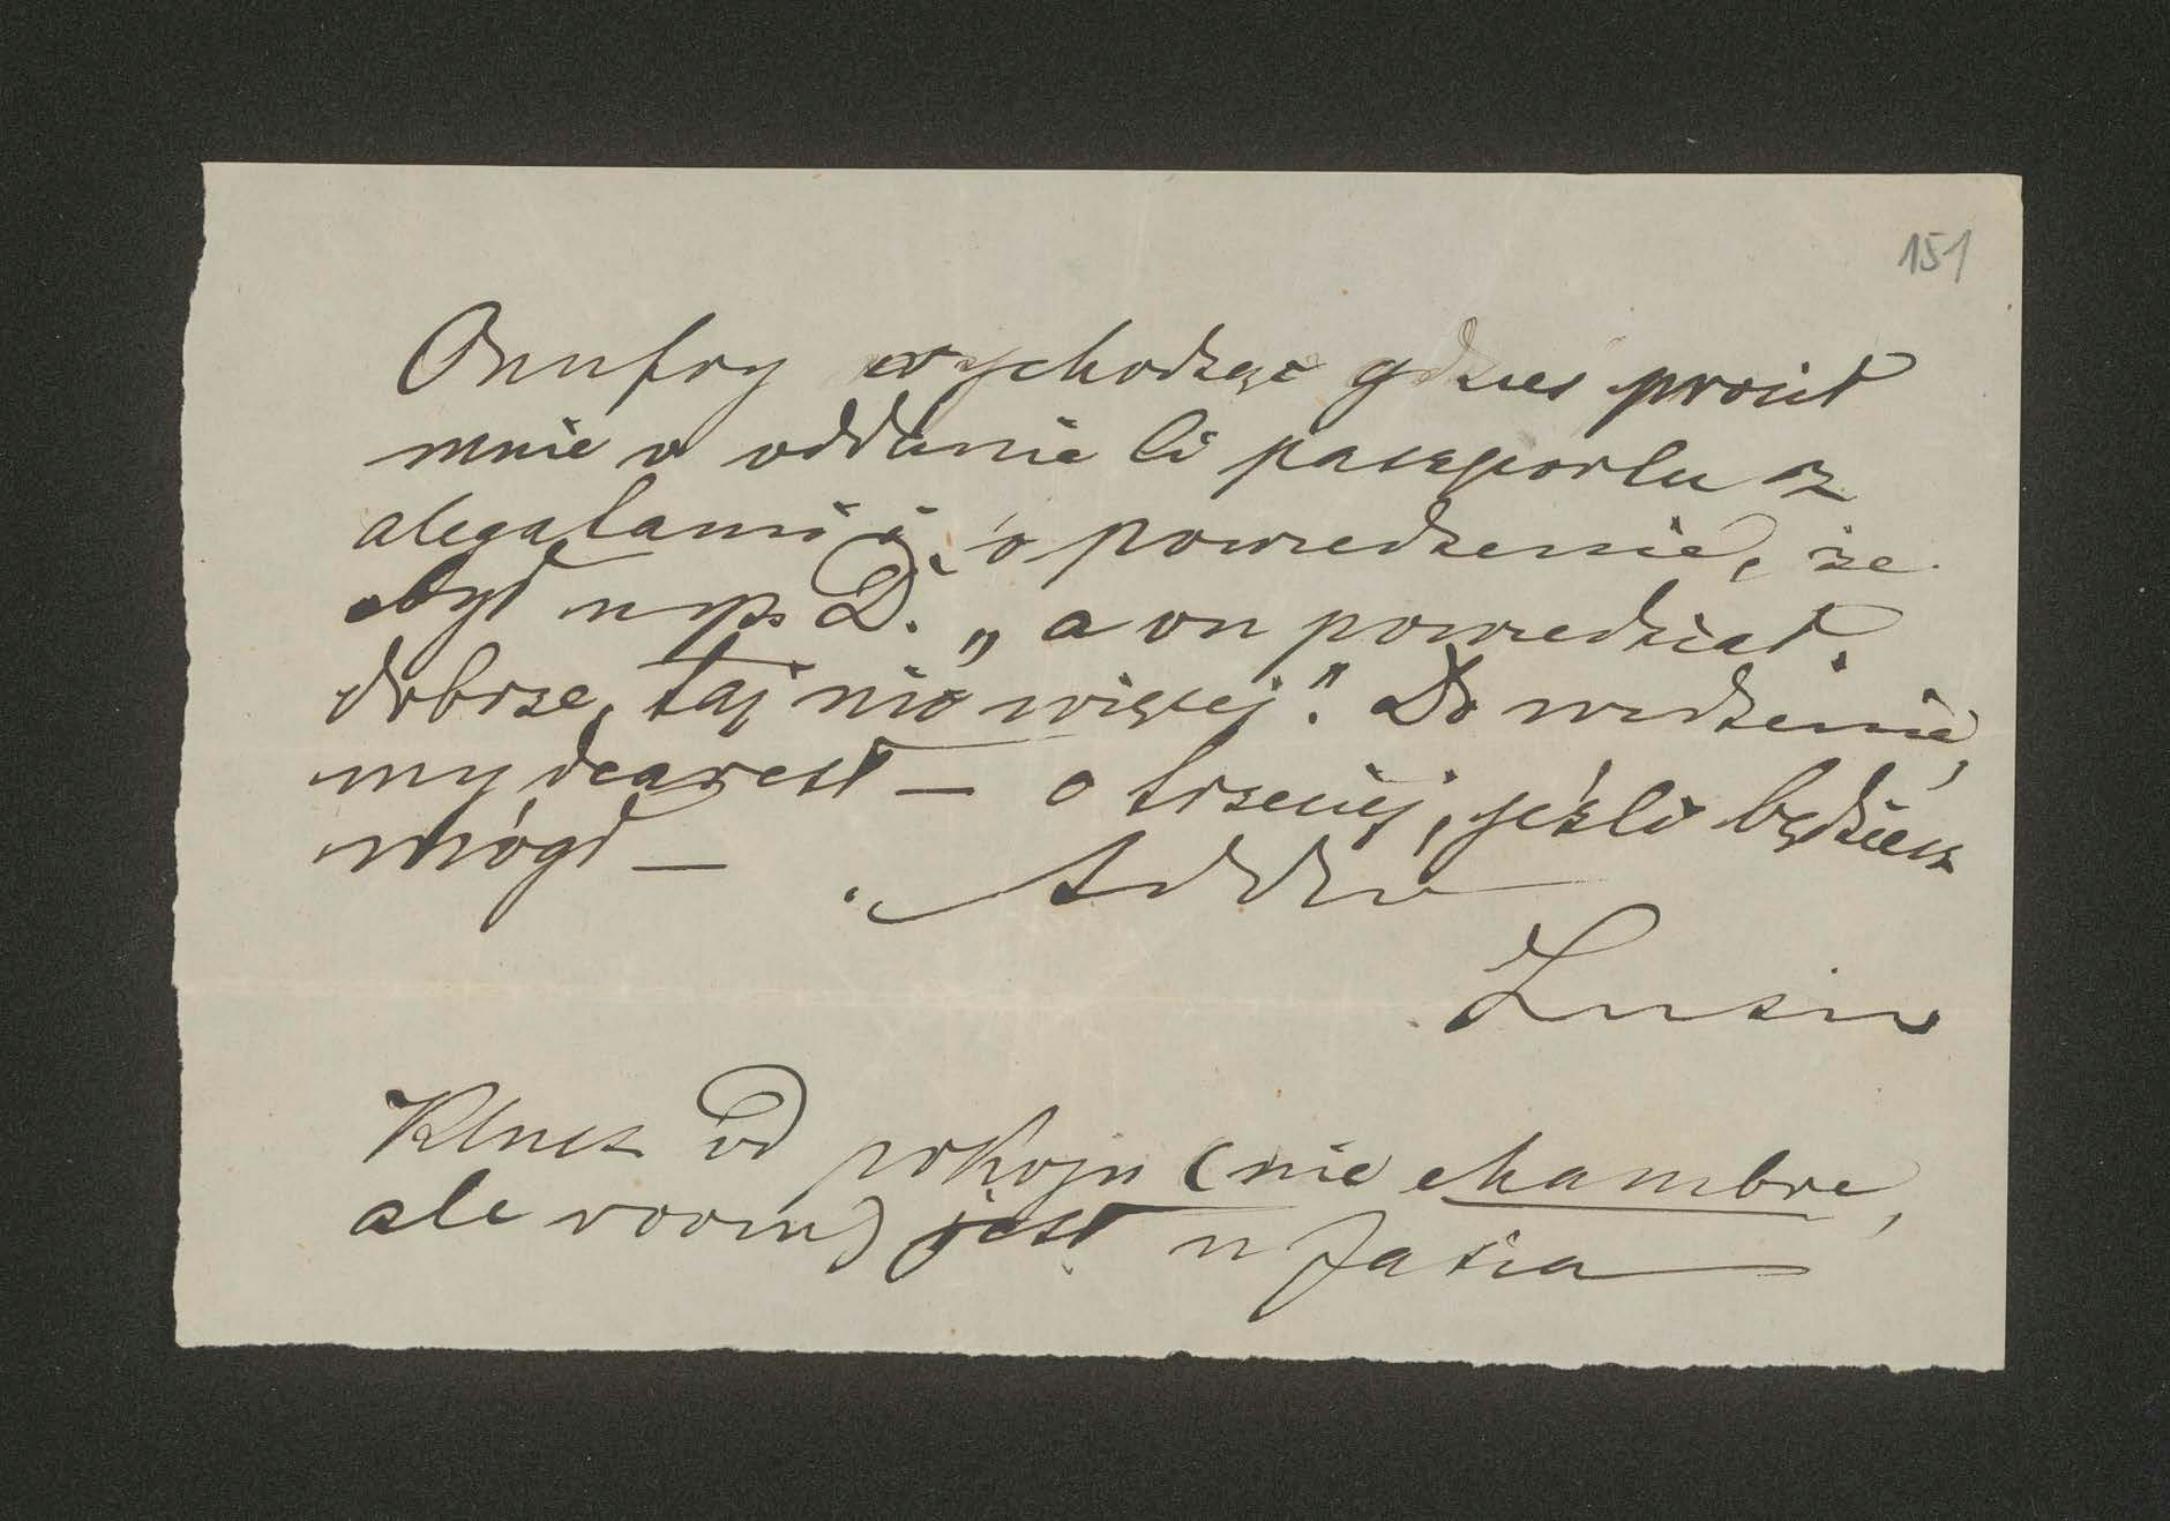 151
Onufry wychodząc gdzieś prosił
mnie o oddanie Ci paszportu z
alegatami i o powiedzenie, że
był u ps. D. „a on powiedział:
dobrze, taj nic więcej." Do widzenia,
my dearest — o trzeciej, jeśli będziesz
mógł —
Lusin
Klucz od pokoju (nie chambre,
ale room) jest u Jasia